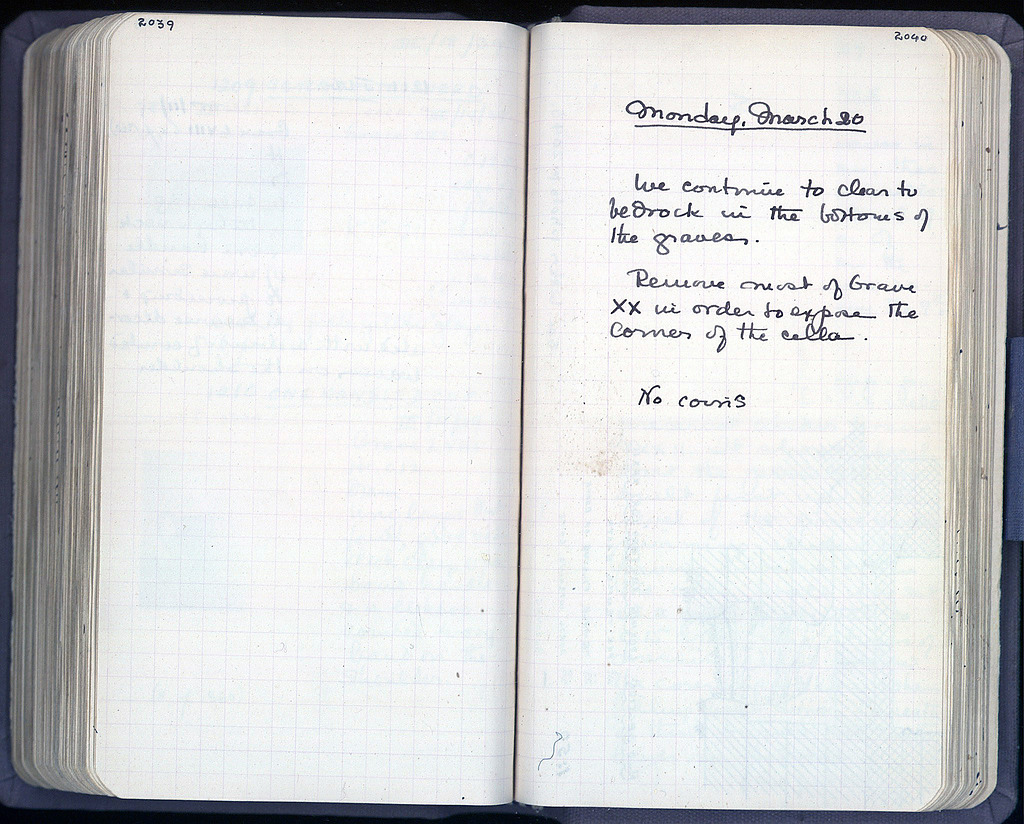 2039
2040
Monday, March 20
We continue to clear to
bedrock in the bottoms of
the graves.
Remove most of Grave
XX in order to expose the
corner of the cella.
No coins